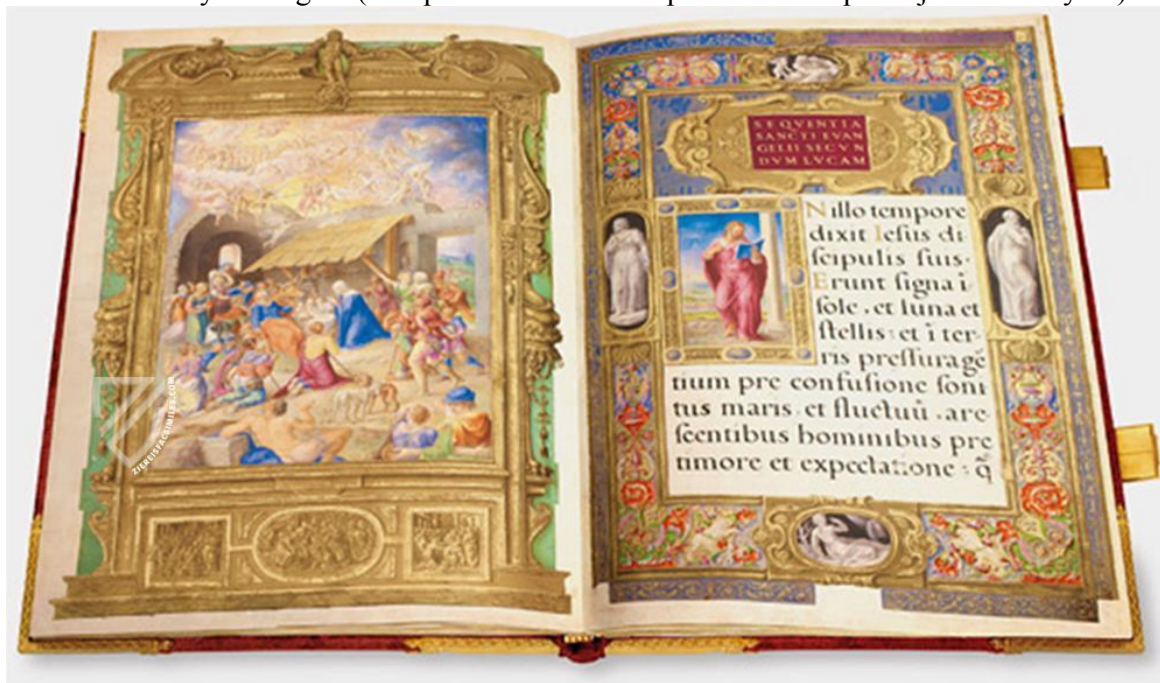 SEQVENTIA
SANCTI EVAN
GELII SECVN
DVM LVCAM
N illo tempore
dixit Ieſus di
ſcipulis ſuis·
Erunt ſigna ī
ſole . et luna et
ſtellis : et ī ter-
ris preſſura gē
tium pre confuſione ſoni
tus maris . et fluctuū . are
ſcentibus hominibus pre
timore et expectatione : q̄
ZIEREISFACSIMILES.COM